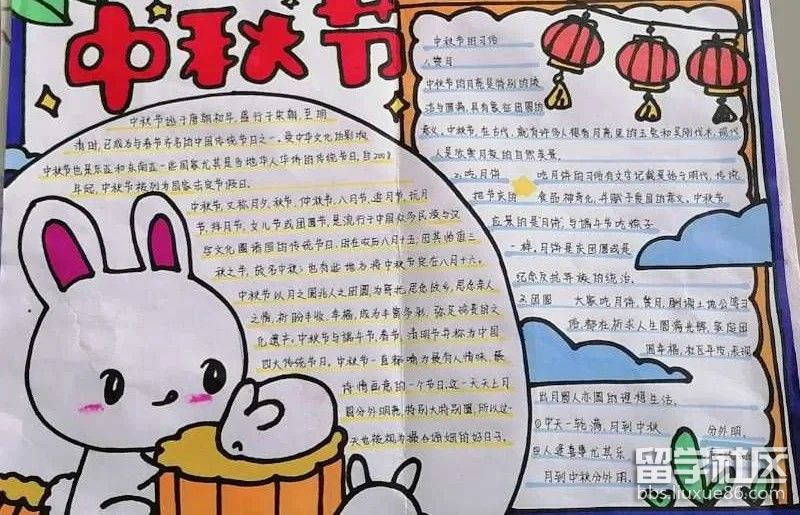 中秋节
中秋节始于唐朝初年,盛行于宋朝,至明
清时,已成为与春节齐名的中国传统节日之一。受中华文化的影响,
中秋节也是东亚和东南亚一些国家尤其是当地华人华侨的传统节日。自2008
年起,中秋节被列为国家法定节假日。
中秋节,又称月夕、秋节、仲秋节、八月节、追月节、玩月
节、拜月节、女儿节或团圆节,是流行于中国众多民族与汉
字文化圈诸国的传统节日,时在农历八月十五;因其恰值三
秋之半,故名中秋;也有些地方将中秋节定在八月十六。
中秋节以月之圆兆人之团圆,为寄托思念故乡,思念亲人
之情,祈盼丰收、幸福,成为丰富多彩、弥足珍贵的文
化遗产。中秋节与端午节、春节、清明节并称为中国
四大传统节日。中秋节一直都喻为最有人情味、最
诗情画意的一个节日,这一天天上月
圆分外明亮,特别大特别圆,所以这一
天也被视为撮合
中秋节的习俗
1.赏月
中秋节的月亮是特别的
洁与圆满,具有象征团圆的
意义。中秋节,在古代,就有许多人想有月亮里的玉兔和吴刚伐木,现代
人是欣赏月夜的自然美景。
2.吃月饼 吃月饼的习俗有文字记载是始于明代,传统
把节庆的 食品神奇化,并赋予食目的意义。中秋节
应景的是月饼,与端午节吃粽子
一样,月饼是庆团圆或是
纪念反抗异族的统治。
3.团圆 大家吃月饼、赏月、酬谢土地公等习
俗,都在祈求人生圆满光辉、家庭团
圆幸福、社区平安,表现
出月圆人亦圆的理想生活。
①中天一轮满,月到中秋 分外明。
月到中秋分外明。
留学社区
bbs.liuxue86.com